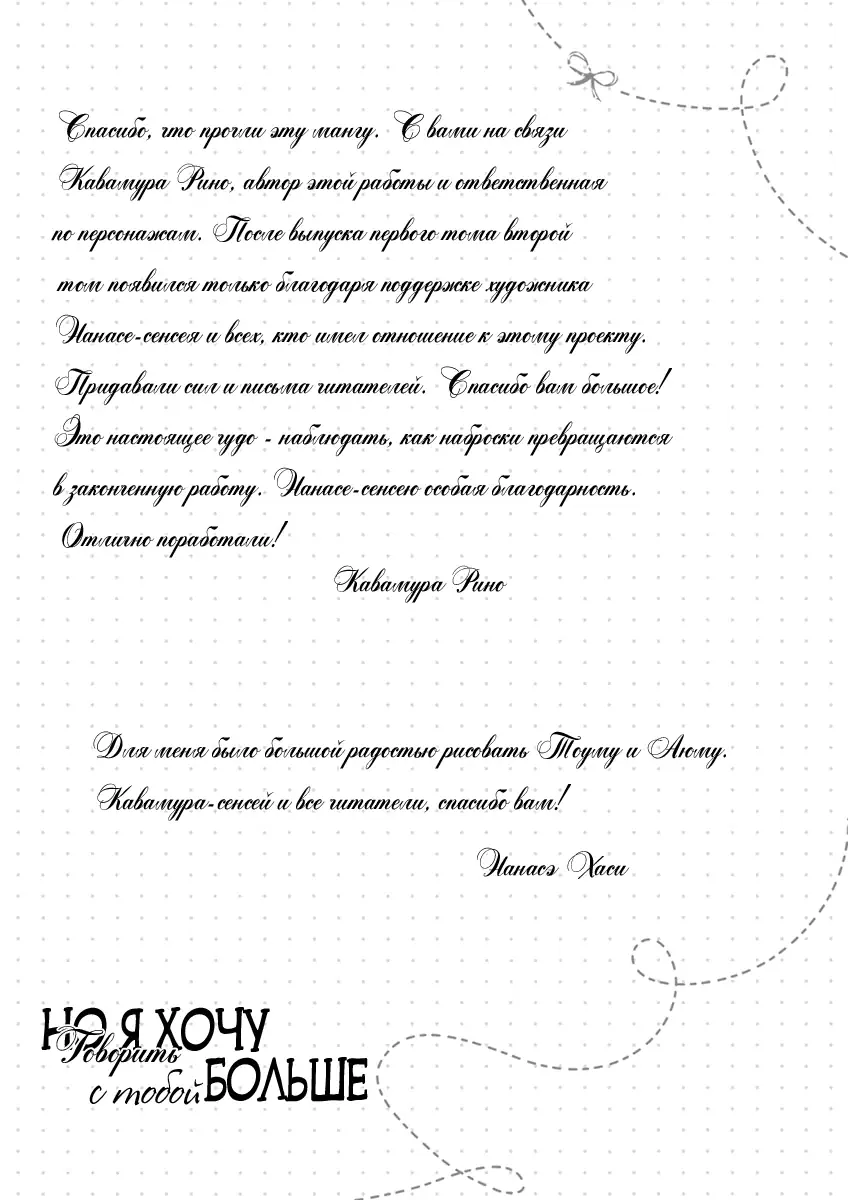 Спасибо, что прочли эту мангу. С вами на связи
Кавамура Рино, автор этой работы и ответственная
по персонажам. После выпуска первого тома второй
том появился только благодаря поддержке художника
Нанасе-сенсея и всех, кто имел отношение к этому проекту.
Придавали сил и письма читателей. Спасибо вам большое!
Это настоящее чудо - наблюдать, как наброски превращаются
в законченную работу. Нанасе-сенсею особая благодарность.
Отлично поработали!
Кавамура Рино
Для меня было большой радостью рисовать Тоуму и Аюму.
Кавамура-сенсей и все читатели, спасибо вам!
Нанасэ Хаси
НО Я ХОЧУ
Говорить
с тобой БОЛЬШЕ